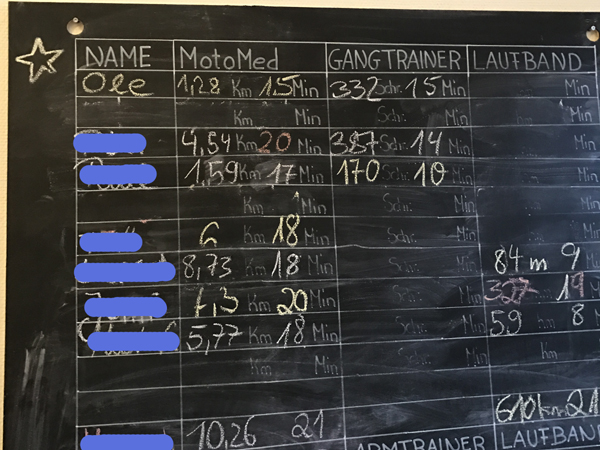 NAME MotoMed GANGTRAINER LAUFBAND
Ole 1,28 Km 15 Min 332 Schr. 15 Min Min
Km Min Schr. Min Min
4,54 Km 20 Min 387 Schr. 14 Min Min
1,59 Km 17 Min 170 Schr. 10 Min Min
Km Min Schr. Min Min
6 Km 18 Min Schr. Min Min
8,73 Km 18 Min Schr. Min 84 m 9 Min
Km 20 Min Schr. Min 327 19 Min
5,77 Km 18 Min Schr. Min 59 8 Min
Km Min Schr. Min km Min
610 21
10,26 21 ARMTRAINER LAUFBAND